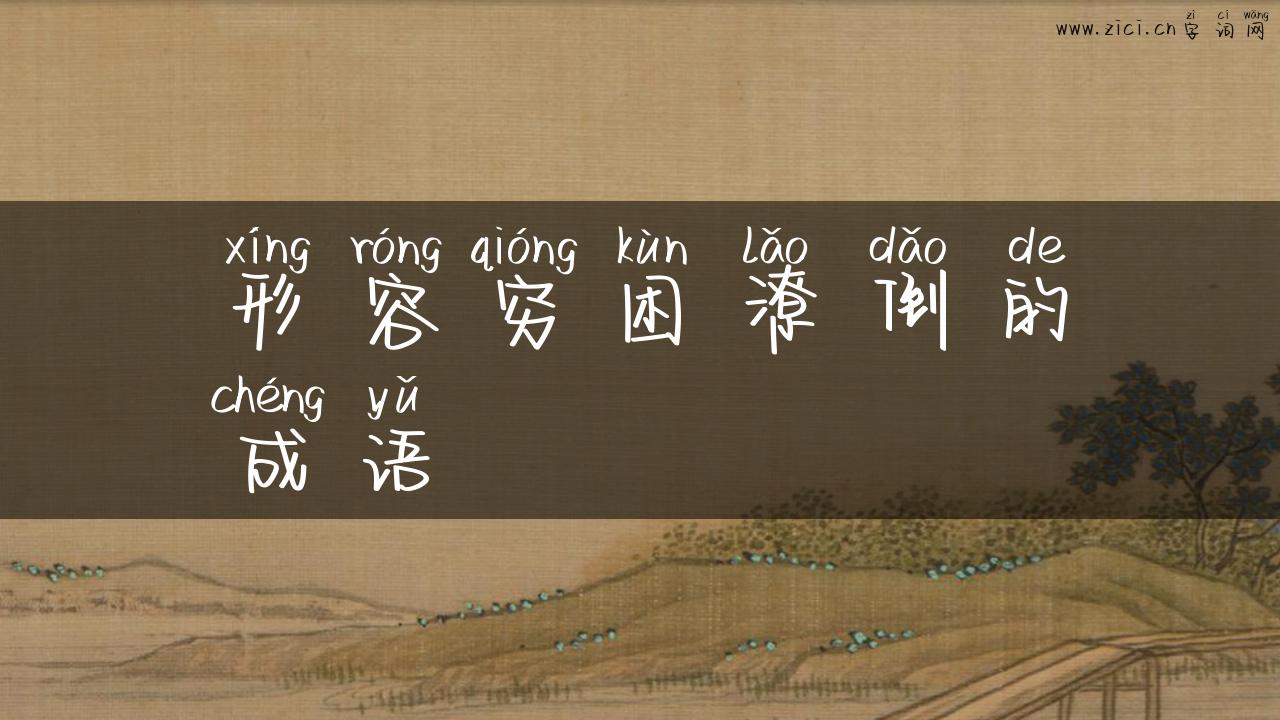 zì cí wǎng
www.zici.cn 字词网
xíng róng qióng kùn lǎo dǎo de
形容穷困潦倒的
chéng yǔ
成语